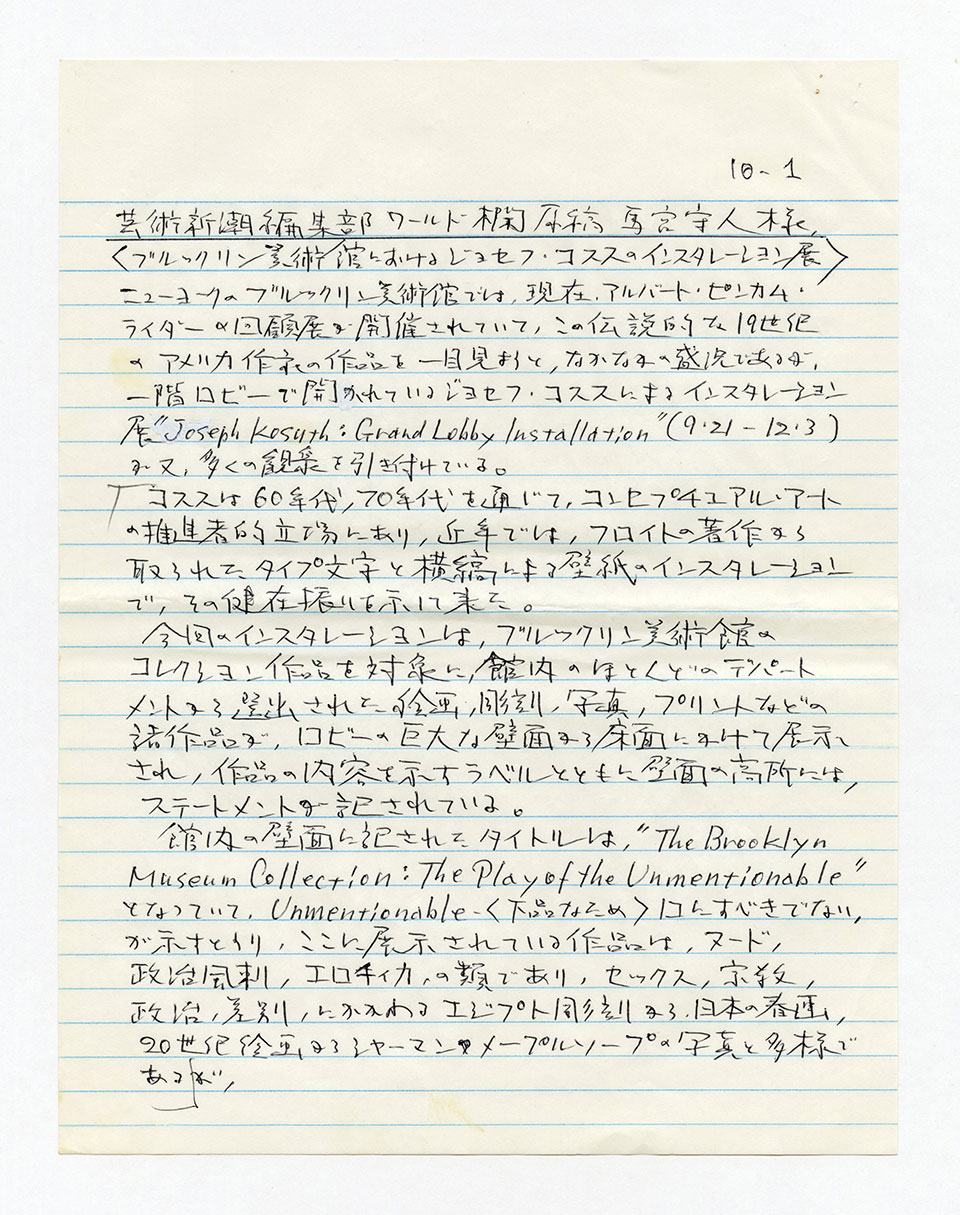 10-1
芸術新潮編集部 ワールド欄原稿 馬宮守人様、
〈ブルックリン美術館におけるジョセフ・コススのインスタレーション展〉
ニューヨークのブルックリン美術館では、現在、アルバート・ピンカム・
ライダーの回顧展が開催されていて、この伝説的な19世紀
のアメリカ作家の作品を一目見ようと、なかなかの盛況であるが、
一階ロビーで開かれているジョセフ・コススによるインスタレーション
展"Joseph Kosuth: Grand Lobby Installation"(9・21-12・3)
が又、多くの観衆を引き付けている。
コススは60年代、70年代を通じて、コンセプチュアル・アート
の推進者的立場にあり、近年では、フロイトの著作から
取られたタイプ文字と横縞による壁紙のインスタレーション
で、その健在振りを示して来た。
今回のインスタレーションは、ブルックリン美術館の
コレクション作品を対象に、館内のほとんどのデパート
メントから選出された絵画、彫刻、写真、プリントなどの
諸作品が、ロビーの巨大な壁面から床面にかけて展示
され、作品の内容を示すラベルとともに壁面の高所には、
ステートメントが記されている。
館内の壁面に記されたタイトルは、"The Brooklyn
Museum Collection: The Play of the Unmentionable"
となっていて、Unmentionable-〈下品なため〉口にすべきでない、
が示すとうり、ここに展示されている作品は、ヌード、
政治風刺、エロティカ、の類であり、セックス、宗教、
政治、差別、にかかわるエジプト彫刻から、日本の春画、
20世紀絵画からシャーマン、メープルソープの写真と多様で
あるが、